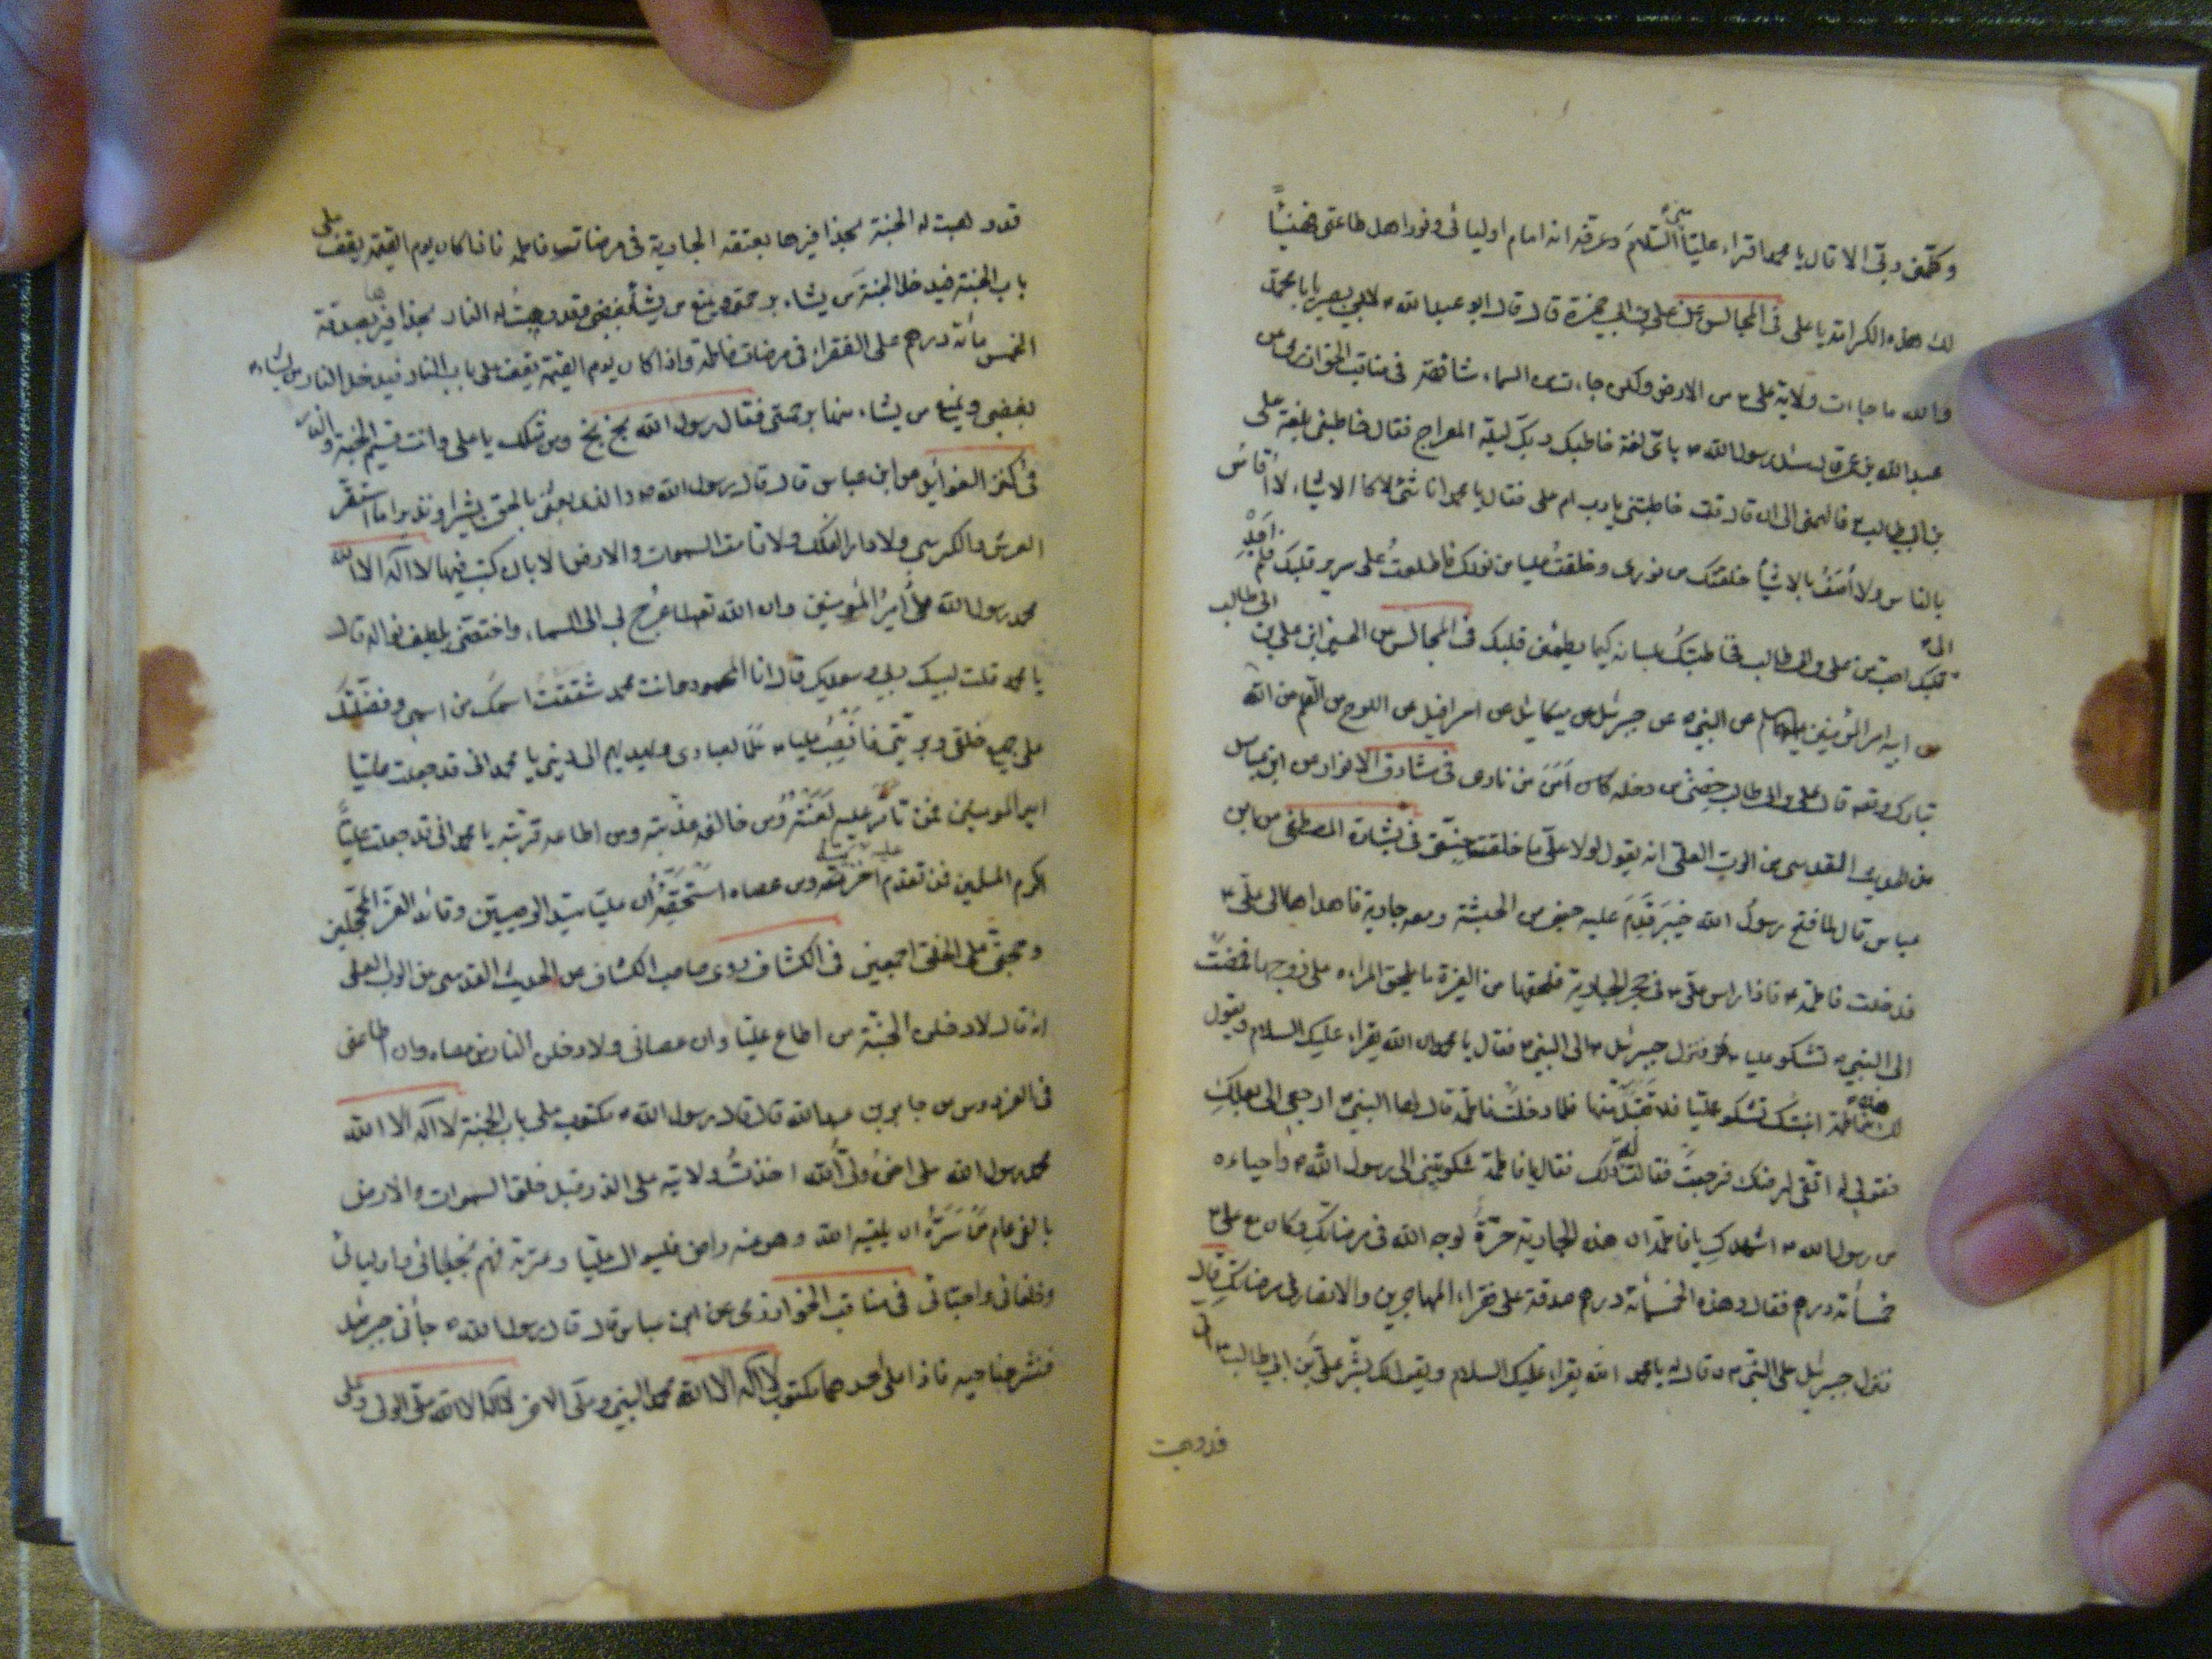 وكلّمنى ربّى الا قال يا محمد اقراء عليّاً منى السّلام وعرفه انه امام اوليائى ونور اهل طاعتى فهنيئاً
لك هذه الكرامة يا على فى المجالس عن على بن ابى حمزة قال قال ابو عبدالله لابى بصير يا با محمد
والله ما جاءت ولاية على من الارض ولكن جاءت من السماء مشافهة فى مناقب الخوارزمى عن
عبدالله بن عمر قال سئل رسول الله باىّ لغة خاطبك ربّك ليلة المعراج فقال خاطبنى بلغة على
بن ابى طالب فالهمنى الى ان قال قلت خاطبتنى يا رب ام على فقال يا محمد انا شئ لا كالاشياء لا اُقاسُ
بالناس ولا اُوصَفُ بالاشياء خلقتك من نورى وخلقت عليا من نورك فاطلعتُ على سرير قلبك فلم اجد
الى قلبك احبّ من على بن ابى طالب فخاطبتُكَ بلسانه كيما يطمئن قلبك فى المجالس عن الحسين ابن على بن ابى طالب
عن ابيه امير المؤمنين عليه السلام عن النبى عن جبرئيل عن ميكائيل عن اسرافيل عن اللوح عن القلم عن الله
تبارك وتعالى قال على بن ابى طالب حِصنى من دخله كان اَمِنَ من نارى فى مشارق الانوار عن ابن عباس
عن الحديث القدسى عن الرب العلى انه يقول لولا علىّ ما خلقت جنتى فى بشارة المصطفى عن ابن
عباس قال لما فتح رسول الله خيبر قَدِمَ عليه جعفر من الحبشة ومعه جارية فاهداها الى علىّ
فدخلت فاطمة فاذا راس علىّ فى حجر الجارية فلحقها من الغيرة ما يلحق المراءة على زوجها فمضت
الى النبى تشكو عليا فنزل جبرئيل الى النبى فقال يا محمد ان الله يقراء عليك السلام ويقول
لك هذه فاطمة ابنتك تشكو عليّا فلا تقبلَنَّ منها فلما دخلت فاطمة قال لها النبى ارجعى الى بعلكِ
فقولى له انفى لرضاك فرجعت فقالت له ذلك فقال يا فاطمة شكوتينى الى رسول الله واحياءه
من رسول الله اشهدكِ يا فاطمة ان هذه الجارية حرّةٌ لوجه الله فى مرضاتكِ وكان مع على
خمسأة درهم فقال وهذه الخمسمأة درهم صدقة على فقراء المهاجرين والانصار فى مرضاتكِ قال
فنزل جبرئيل على النبى قال له يا محمد الله يقراء عليك السلام ويقول لك بشّر علىّ بن ابى طالب انى
قد وهبت
قد وهبت له الجنة بحذافيرها بعتقه الجارية فى مرضات فاطمة فاذا كان يوم القيمة يقف على
باب الجنة فيدخل الجنة من يشاء برحمتى ويمنع من يشاء بغضبى وقد وهبتُ له النار بحذافيرها بصدقة
الخمس مأة درهم على الفقراء فى مرضات فاطمة واذا كان يوم القيمة يقف على باب النار فيدخل النار من يشاء
بغضبى ويمنع من يشاء منها برحمتى فقال رسول الله بخ بخ ومن مثلك يا على وانت قسيم الجنة والنار
فى كنز الفوائد عن ابن عباس قال قال رسول الله والذى بعثنى بالحق بشيرا ونذيرا ما استقر
العرش والكرسى ولا دار الفلك ولا قامت السموات والارض الا بان كتب فيها لا اله الا الله
محمد رسول الله علىٌّ أميرُ المؤمنين وان الله تعالى عَرَجَ بى الى السماء واختصنى بلطيف نوالِه قال
يا محمد قلت لبيك ربى وسعديك قال انا المحمود وانت محمد شققتُ اسمك من اسمى وفضّلتُك
على جميع خلقى وبريّتى فانصب عليا علمًا لعبادى يهديهم الى دينى يا محمد انى قد جعلت عليّا
امير المومنين فمن تأمّر عليه لَعَنتُهُ ومن خالفه عذّبته ومن اطاعه قربته يا محمد انى قد جعلت عليّاً
اكرم المسلمين فمن تقدم عليه اخزيته ومن عصاه استحقيته ان عليّا سيّد الوصيين وقائد الغر المحجلين
وحجتى على الخلق اجمعين فى الكشاف روى صاحب الكشاف عن الحديث القدسى عن الرب العلى
انه قال لادخلن الجنّة من اطاع عليّا وان عصانى ولادخلن النار من عصاه وان اطاعنى
فى الفردوس عن جابر بن عبدالله قال قال رسول الله مكتوب على باب الجنة لا اله الا الله
محمد رسول الله على اخى ولىّ الله اخذتُ ولايته على الذر قبل خلق السموات والارض
بالفى عام مَن سَرَّهُ ان يلقيه الله وهو عنه راض فليتوال عليّا وعترته فهم نجبائى واوليائى
وخلفائى واحبّائى فى مناقب الخوارزمى عن ابن عباس قال قال رسول الله جأنى جبرئيل
فنشر جناحيه فاذا على أحدهما مكتوب لا اله الا الله محمد النبى وعلى الاخر لا اله الا الله على الولى وعلى